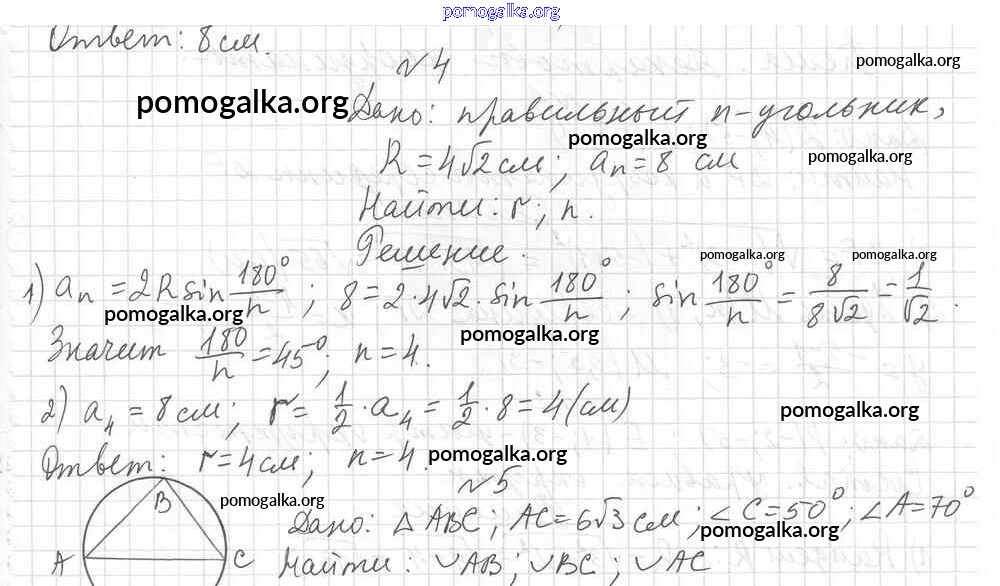 pomogalka.org
Ответ: 8 см.
№4
pomogalka.org
pomogalka.org Дано: правильный n-угольник,
pomogalka.org
R = 4√2 см; aₙ = 8 см
pomogalka.org
Найти: r; n.
Решение.
pomogalka.org pomogalka.org
1) aₙ = 2R sin 180°/n; 8 = 2·4√2·sin 180°/n; sin 180°/n = 8/8√2 = 1/√2.
pomogalka.org
pomogalka.org
Значит 180/n = 45°; n = 4.
2) a₄ = 8 см; r = 1/2·a₄ = 1/2·8 = 4 (см)
pomogalka.org
Ответ: r = 4 см; n = 4.
pomogalka.org
№5
B
pomogalka.org
Дано: △ABC; AC = 6√3 см; ∠C = 50°; ∠A = 70°
pomogalka.org
A C Найти: ◡AB; ◡BC; ◡AC